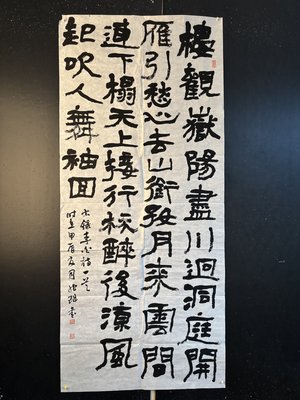 樓觀嶽陽盡川迥洞庭開
雁引愁心去山銜好月來雲間
連下榻天上接行杯醉後涼風
起吹人舞袖回
錄李白詩一首
甲辰夏月